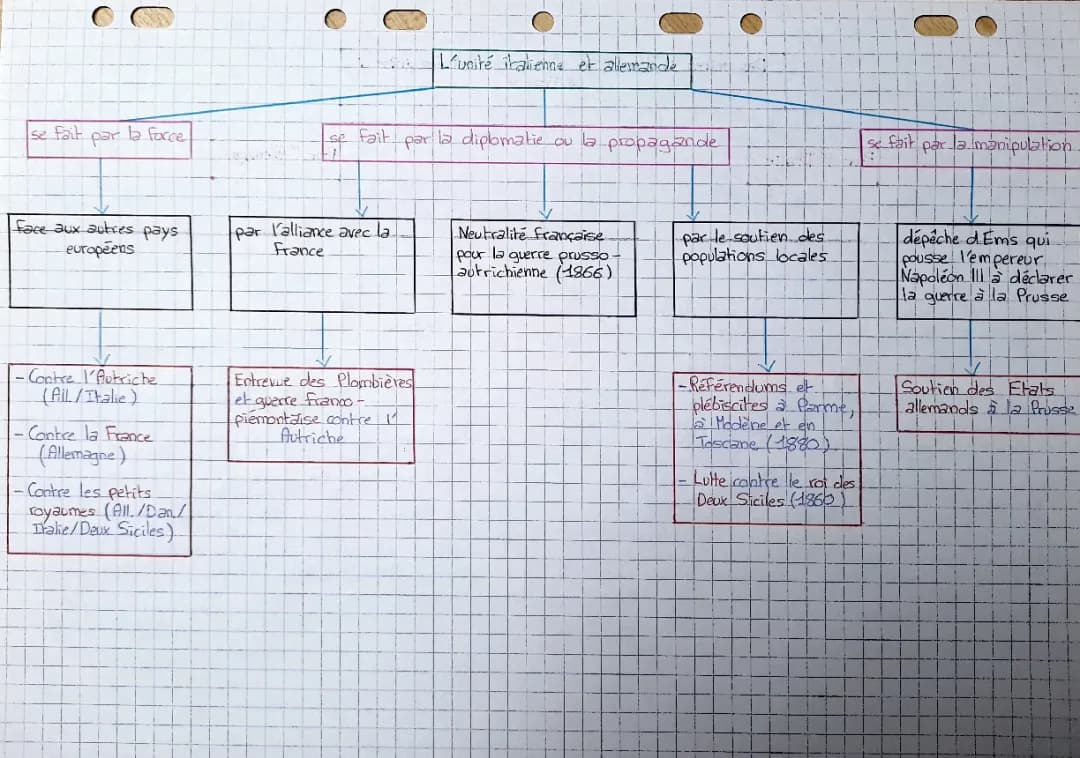 L'unité italienne et allemande
se fait par la force
se fait par la diplomatie ou la propagande
se fait par la manipulation
Face aux autres pays
européens
par l'alliance avec la
France
Neutralité française
pour la guerre prusso-
autrichienne (1866)
par le soutien des
populations locales
dépêche d'Ems qui
pousse l'empereur
Napoléon III à déclarer
la guerre à la Prusse
- Contre l'Autriche
(All./Italie)
- Contre la France
(Allemagne)
- Contre les petits
royaumes (All./Dan./
Italie/Deux Siciles)
Entrevue des Plombières
et guerre franco-
piémontaise contre l'
Autriche
- Référendums et
plébiscites à Parme,
à Modène et en
Toscane (1880)
- Lutte contre le roi des
Deux Siciles (1860)
Soutien des Etats
allemands à la Prusse